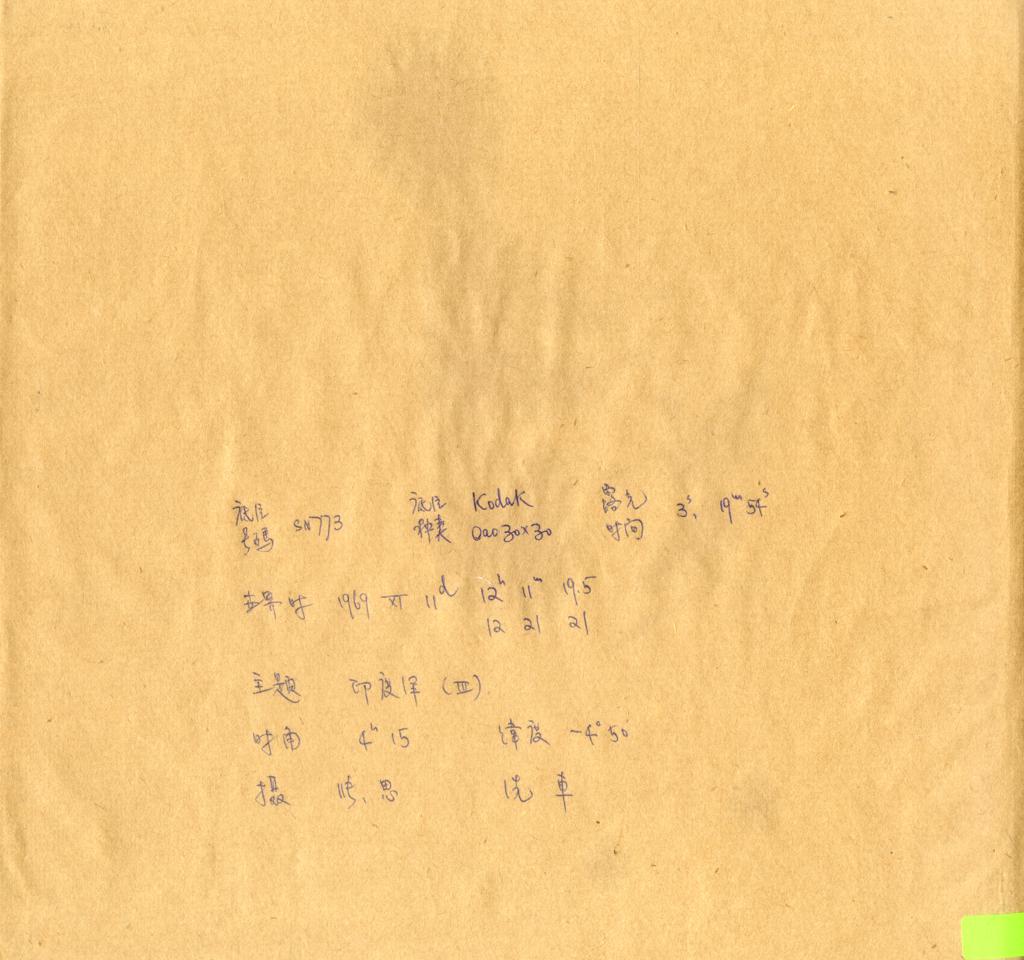 底片 号码 SN773 底片 种类 Kodak Oao 30×30 露光 时间 3ˢ, 19ᵐ 54ˢ
世界时 1969 XI 11ᵈ 12ʰ 11ᵐ 19.5
12 21 21
主题 印度洋 (III)
时角 4ʰ 15 纬度 -4°50'
摄 思 洗 車